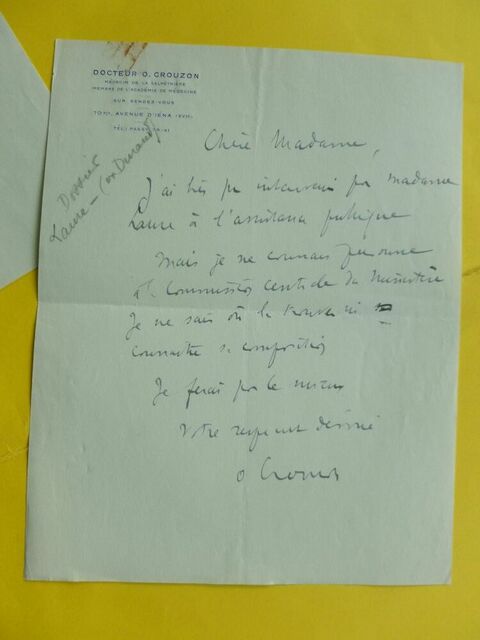 DOCTEUR O. CROUZON
MÉDECIN DE LA SALPÊTRIÈRE
MEMBRE DE L'ACADÉMIE DE MÉDECINE
SUR RENDEZ-VOUS
70 BIS, AVENUE D'IÉNA (XVIE)
TÉL: PASSY
Dossier
Laure - (ex Durand)
Chère Madame,
J'ai très pu intervenir pr madame
Laure à l'assistance publique
Mais je ne connais personne
à la Commission centrale du Ministère
Je ne sais où la trouver ni
connaître sa composition
Je ferai pour le mieux
Votre respect dévoué
O Crouzon